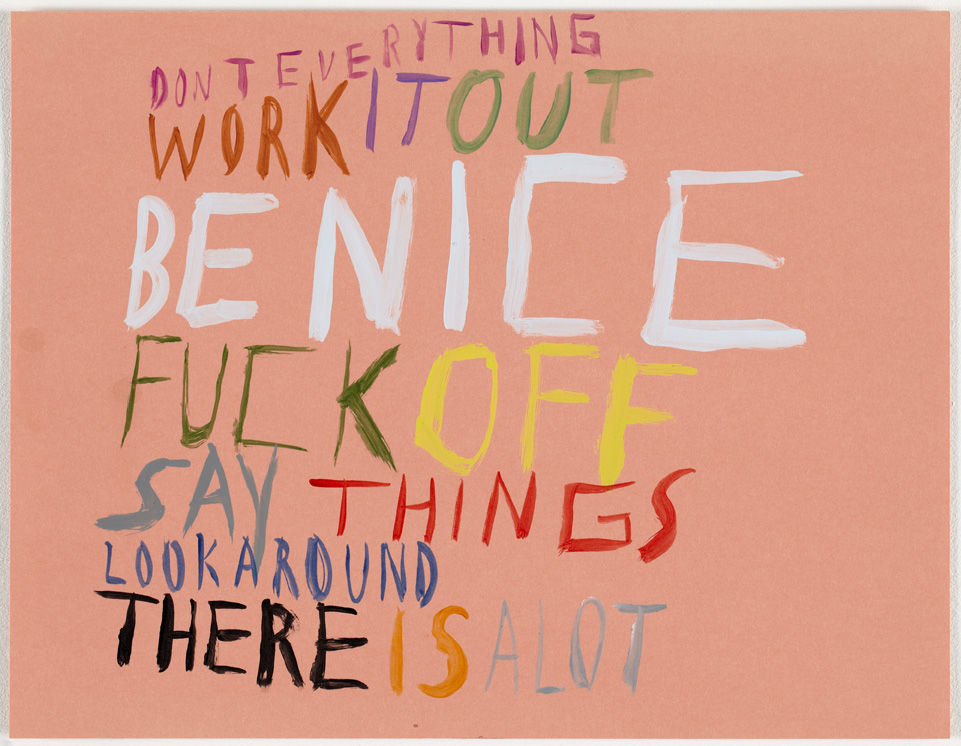 DONT EVERYTHING
WORK IT OUT
BE NICE
FUCK OFF
SAY THINGS
LOOK AROUND
THERE IS ALOT